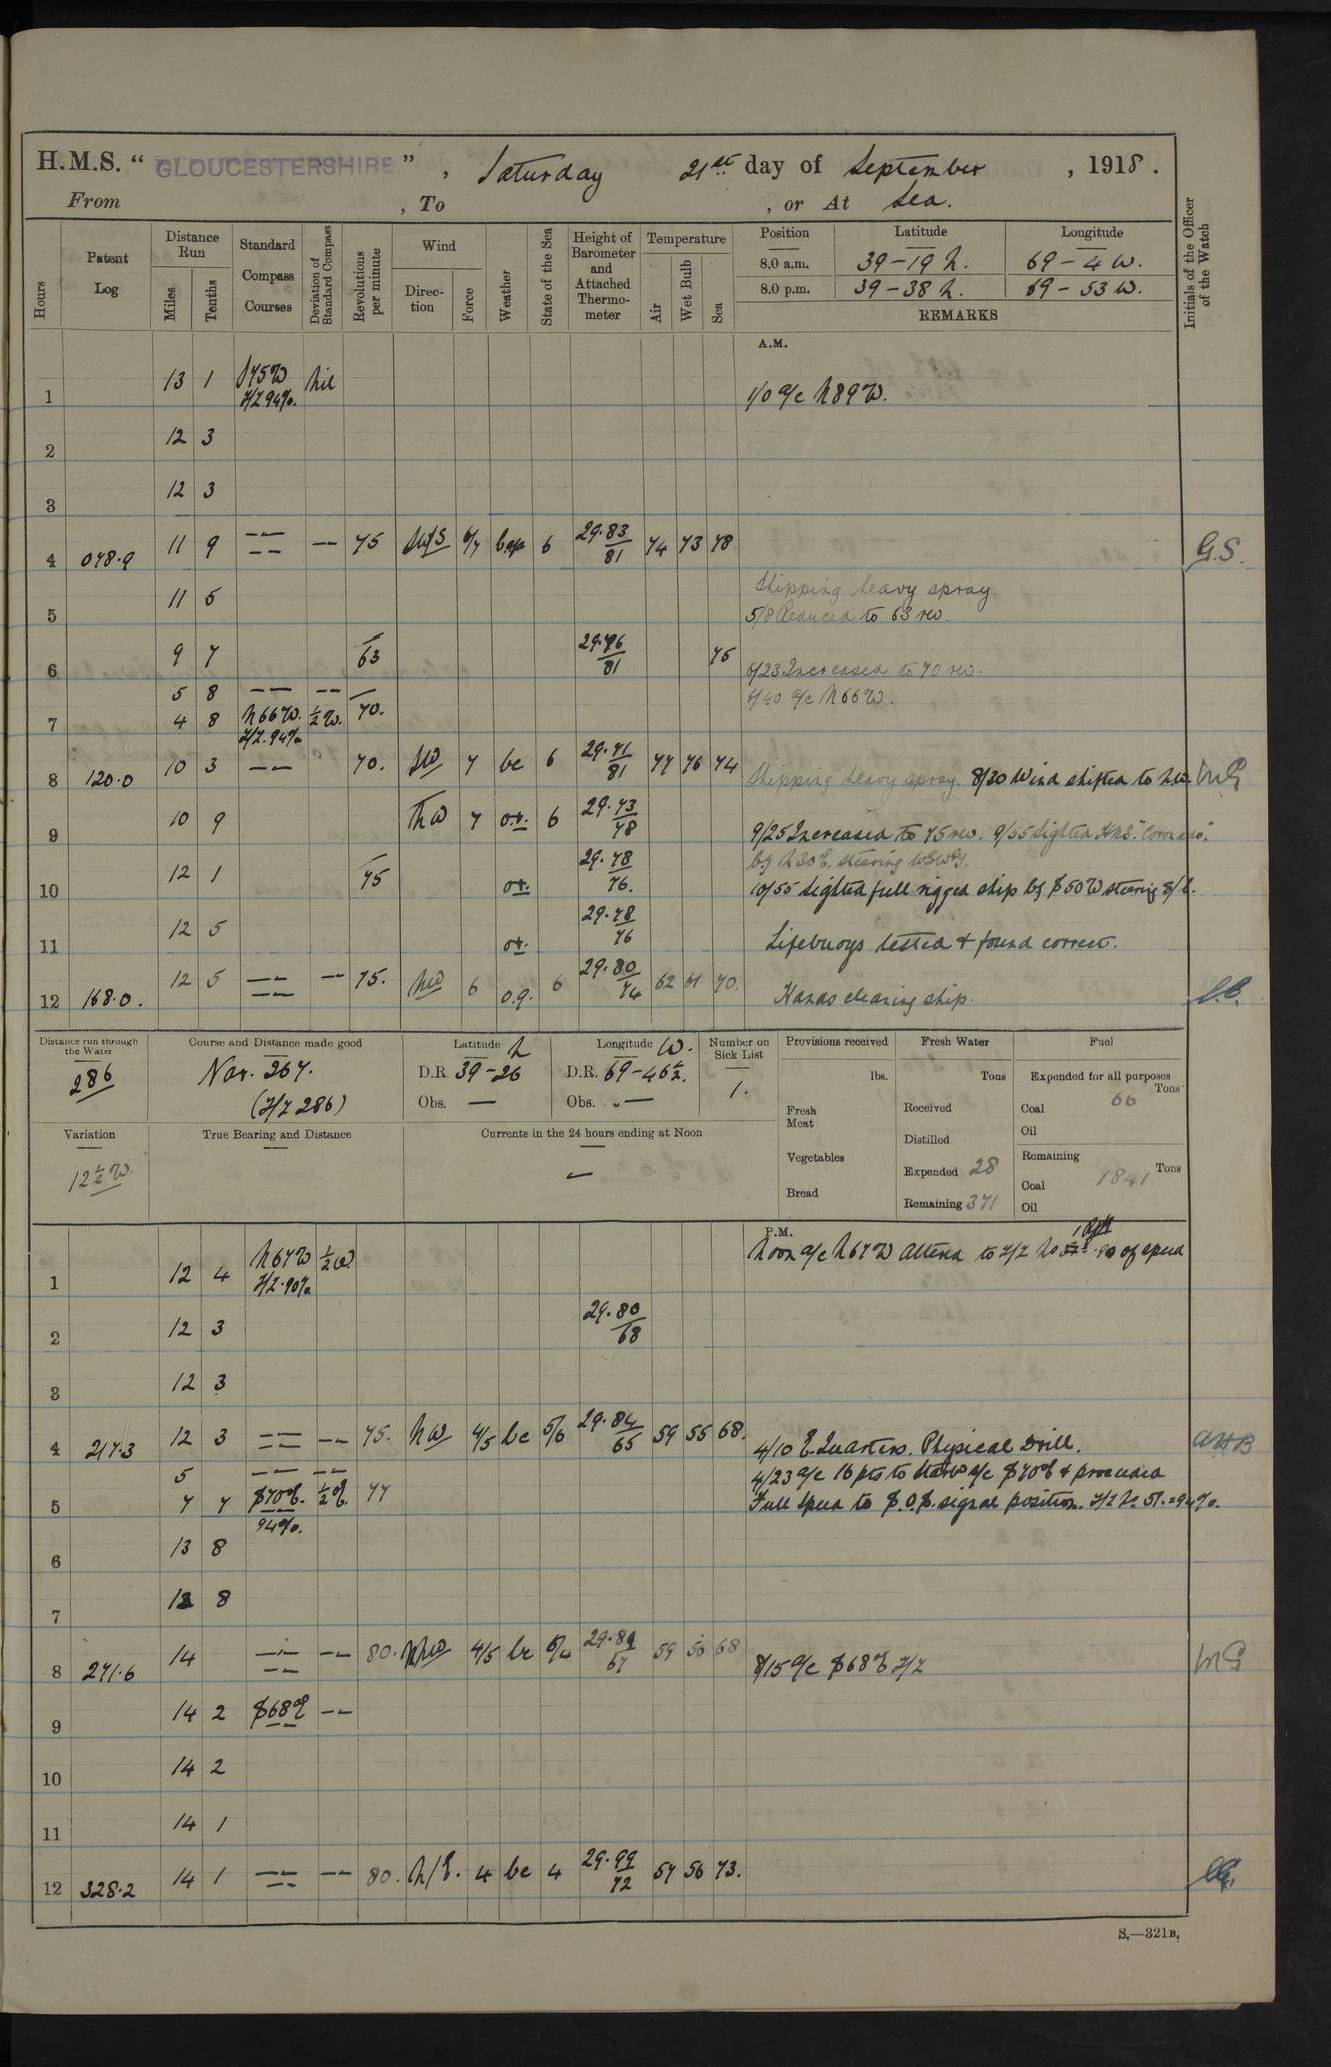 H.M.S. “GLOUCESTERSHIRE.”, Saturday 21st day of September, 1918.
From , To , or At Sea.
Hours
Patent Log
Distance Run
Miles
Tenths
Standard Compass Courses
Deviation of Standard Compass
Revolutions per minute
Wind
Direction
Force
Weather
State of the Sea
Height of Barometer and Attached Thermometer
Temperature
Air
Wet Bulb
Sea
Position Latitude Longitude
8.0 a.m. 39-19 N. 69-4 W.
8.0 p.m. 39-38 N. 69-53 W.
REMARKS
Initials of the Officer of the Watch
A.M.
1 13 1 S75W Z/Z 94%. Nil 1/0 a/c N89W.
2 12 3
3 12 3
4 078.9 11 9 75 6/7 6 29.83/81 74 73 78 G.S.
Shipping heavy spray.
5 11 5 5/8 Reduced to 63 rev.
6 9 7 63 29.76/81 75 6/23 Increased to 70 rev.
5 8 6/40 a/c N66W.
7 4 8 N66W. Z/Z.94% ½W. 70.
8 120.0 10 3 70. 7 bc 6 29.71/81 77 76 74 Shipping heavy spray. 8/30 Wind shifted to NW.
9 10 9 NW 7 6 29.73/78 9/25 Increased to 75 rev. 9/55 Sighted H.M.S.
bg N30E. steering
10 12 1 75 29.78/76. 10/55 Sighted full rigged ship bg S50W steering
11 12 5 29.78/76 Lifebuoys tested & found correct.
12 168.0. 12 5 75. NW 6 o.q. 6 29.80/74 62 61 70. Hands cleaning ship.
Distance run through the Water
286
Course and Distance made good
267.
(Z/Z 286)
Latitude N
D.R. 39-26
Obs. —
Longitude W.
D.R. 69-46½.
Obs. —
Number on Sick List
1.
Provisions received
lbs.
Fresh Meat
Vegetables
Bread
Fresh Water
Tons
Received
Distilled
Expended 28
Remaining 371
Fuel
Expended for all purposes
Tons
Coal 66
Oil
Remaining
Tons
Coal 1841
Oil
Variation
12½W.
True Bearing and Distance
Currents in the 24 hours ending at Noon
—
P.M.
Noon a/c N67W Altered to Z/Z No of speed
1 12 4 N67W Z/Z.90% ½W
2 12 3 29.80/68
3 12 3
4 217.3 12 3 75. NW 4/5 bc 5/6 29.84/65 59 55 68. 4/10 E. Quarters. Physical Drill. AHB
5 4/23 a/c 16 pts to Starbd a/c S70E & proceeded
5 7 7 S70E. 94%. ½E. 77 Full Speed to signal position. Z/Z No 51.=94%.
6 13 8
7 13 8
8 271.6 14 80. 4/5 bc 5/4 29.89/67 59 56 68 8/15 a/c S68E Z/Z
9 14 2 S68E
10 14 2
11 14 1
12 328.2 14 1 80. N/E. 4 bc 4 29.99/72 57 56 73.
S.—321B.